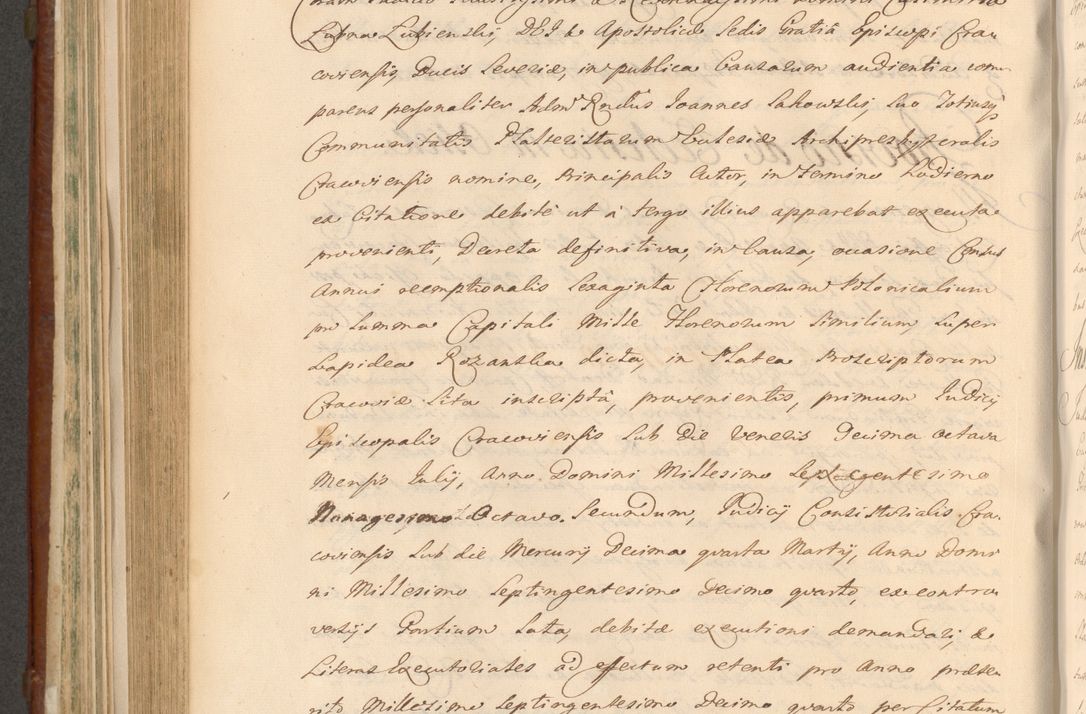 Łubna Łubienskj, DEI & Apostolicæ Sedis Gratiâ Episcopi Cra-
coviensis, Ducis Severiæ, in publica Causarum audientia com-
parens personaliter Admo Rndus Joannes Lakowskj, suo Totiusq̃
Communitatis Psalteristarum Ecclesiæ Archipresbyteralis
Cracoviensis nomine, Principalis Actor, in Termino hodierno
ex Citatione debitè ut à tergo illius apparebat executa
provenienti, Decreta definitiva, in Causa, occasione Census
Annui reemptionalis Sexaginta Florenorum Polonicalium
pro Summa Capitali Mille Florenorum similium super
Lapidea Rozanska dicta, in Platea Proscriptorum
Cracoviæ sita inscriptâ, provenientis, primum Judicij
Episcopalis Cracoviensis sub die Veneris Decima octava
Mensis Julij, Anno Domini Millesimo
Nonagesimo Octavo. Secundum, Judicij Consistorialis Cra-
coviensis sub die Mercurij Decima quarta Martij, Anno Domi
ni Millesimo Septingentesimo Decimo quarto, ex contro-
versijs Partium lata, debitæ executioni demandarj &
Literas Executoriales ad effectum retenti pro Anno præte-
rito Millesimo Septingentesimo Decimo quarto per Citatum